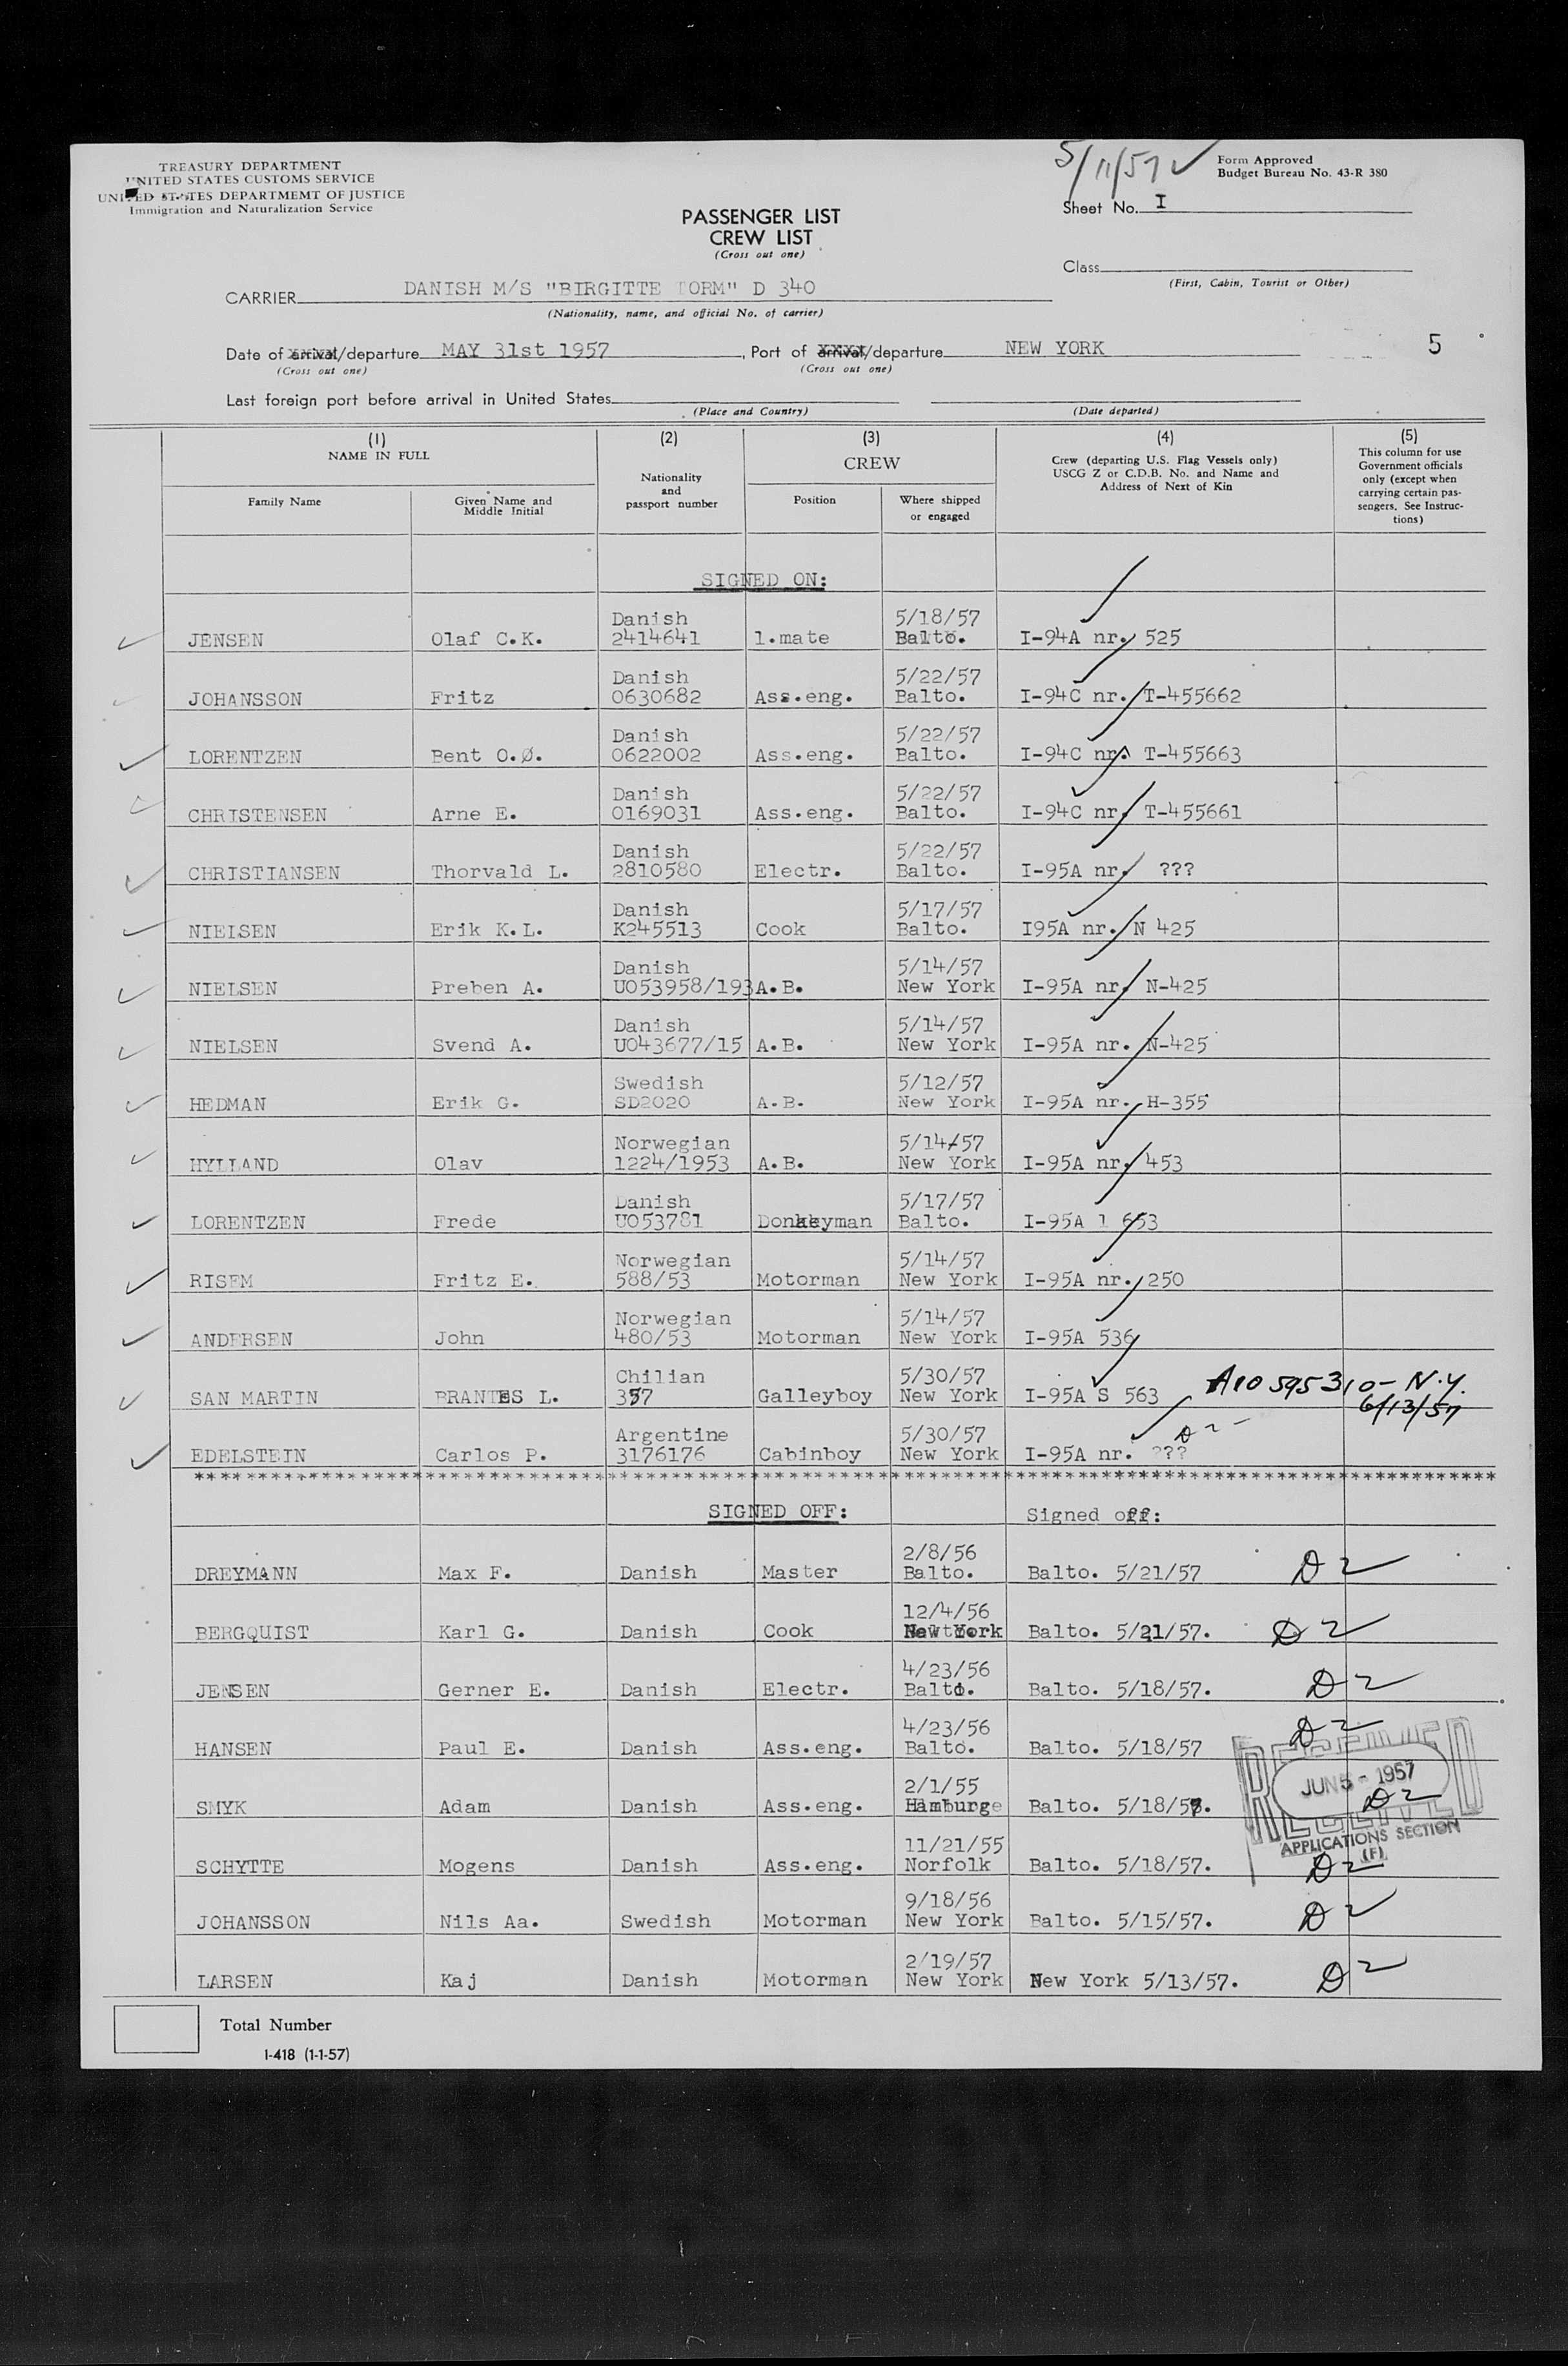 TREASURY DEPARTMENT
UNITED STATES CUSTOMS SERVICE
UNITED STATES DEPARTMEMT OF JUSTICE
Immigration and Naturalization Service
5/11/57
Form Approved
Budget Bureau No. 43-R 380
Sheet No. I
PASSENGER LIST
CREW LIST
(Cross out one)
Class
(First, Cabin, Tourist or Other)
CARRIER DANISH M/S "BIRGITTE TORM" D 340
(Nationality, name, and official No. of carrier)
Date of arrival/departure MAY 31st 1957, Port of arrival/departure NEW YORK 5
(Cross out one) (Cross out one)
Last foreign port before arrival in United States
(Place and Country) (Date departed)
(1) NAME IN FULL
Family Name
Given Name and Middle Initial
(2) Nationality and passport number
(3) CREW
Position
Where shipped or engaged
(4) Crew (departing U.S. Flag Vessels only) USCG Z or C.D.B. No. and Name and Address of Next of Kin
(5) This column for use Government officials only (except when carrying certain pas- sengers. See Instruc- tions)
SIGNED ON:
JENSEN Olaf C.K. Danish 2414641 1.mate 5/18/57 Balto. I-94A nr. 525
JOHANSSON Fritz Danish 0630682 Ass.eng. 5/22/57 Balto. I-94C nr. T-455662
LORENTZEN Bent O.Ø. Danish 0622002 Ass.eng. 5/22/57 Balto. I-94C nr. T-455663
CHRISTENSEN Arne E. Danish 0169031 Ass.eng. 5/22/57 Balto. I-94C nr. T-455661
CHRISTIANSEN Thorvald L. Danish 2810580 Electr. 5/22/57 Balto. I-95A nr. ???
NIELSEN Erik K.L. Danish K245513 Cook 5/17/57 Balto. I95A nr. N 425
NIELSEN Preben A. Danish U053958/193 A.B. 5/14/57 New York I-95A nr. N-425
NIELSEN Svend A. Danish U043677/15 A.B. 5/14/57 New York I-95A nr. N-425
HEDMAN Erik G. Swedish SD2020 A.B. 5/12/57 New York I-95A nr. H-355
HYLLAND Olav Norwegian 1224/1953 A.B. 5/14/57 New York I-95A nr. 453
LORENTZEN Frede Danish U053781 Donkeyman 5/17/57 Balto. I-95A 1 653
RISEM Fritz E. Norwegian 588/53 Motorman 5/14/57 New York I-95A nr. 250
ANDERSEN John Norwegian 480/53 Motorman 5/14/57 New York I-95A 536
SAN MARTIN BRANTES L. Chilian 357 Galleyboy 5/30/57 New York I-95A S 563 A10 595310 - N.Y. 6/13/57
EDELSTEIN Carlos P. Argentine 3176176 Cabinboy 5/30/57 New York I-95A nr. ??? D 2 -
SIGNED OFF: Signed off:
DREYMANN Max F. Danish Master 2/8/56 Balto. Balto. 5/21/57 D 2
BERGQUIST Karl G. Danish Cook 12/4/56 New York Balto. 5/21/57. D 2
JENSEN Gerner E. Danish Electr. 4/23/56 Balto. Balto. 5/18/57. D 2
HANSEN Paul E. Danish Ass.eng. 4/23/56 Balto. Balto. 5/18/57 D 2
SMYK Adam Danish Ass.eng. 2/1/55 Hamburg Balto. 5/18/57. D 2
SCHYTTE Mogens Danish Ass.eng. 11/21/55 Norfolk Balto. 5/18/57. D 2
JOHANSSON Nils Aa. Swedish Motorman 9/18/56 New York Balto. 5/15/57. D 2
LARSEN Kaj Danish Motorman 2/19/57 New York New York 5/13/57. D 2
RECEIVED
JUN 5 - 1957
RECEIVED
APPLICATIONS SECTION
(F)
Total Number
I-418 (1-1-57)